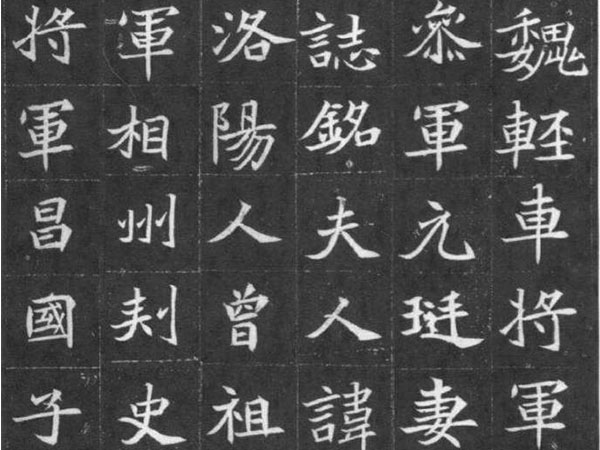 魏輊車將軍
叅軍元珽妻
誌銘夫人諱
洛陽人曾祖
軍相州刾史
将軍昌國子